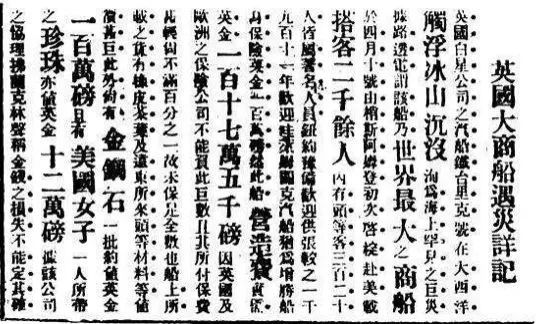 英國大商船遇災詳記
英國白星公司之汽船鐵台里克號在大西洋
觸浮冰山沉沒洵爲海上罕見之巨災
據路透電謂該船乃世界最大之商船
於四月十號由梢斯阿姆登初次啓椗赴美載
搭客二千餘人內有頭等客三百二十
人皆屬著名人員紐約豫備歡迎供張較之一千
九百十一年歡迎哇 克汽船猶爲增勝船
身保險英金一百萬磅然此船營造費實值
英金一百十七萬五千磅因英國及
歐洲之保險公司不能負此巨數且其所付保費
甚輕尙不滿百分之一故未保足全數也船上所
載之貨有橡皮茶葉及遠東所來頭等材料等值
價甚巨此外尙有金鋼石一批約值英金
一百萬磅且有美國女子一人所帶
之珍珠亦值英金十二萬磅據該公司
之協理拂蘭克林聲稱金錢之損失不能定其確